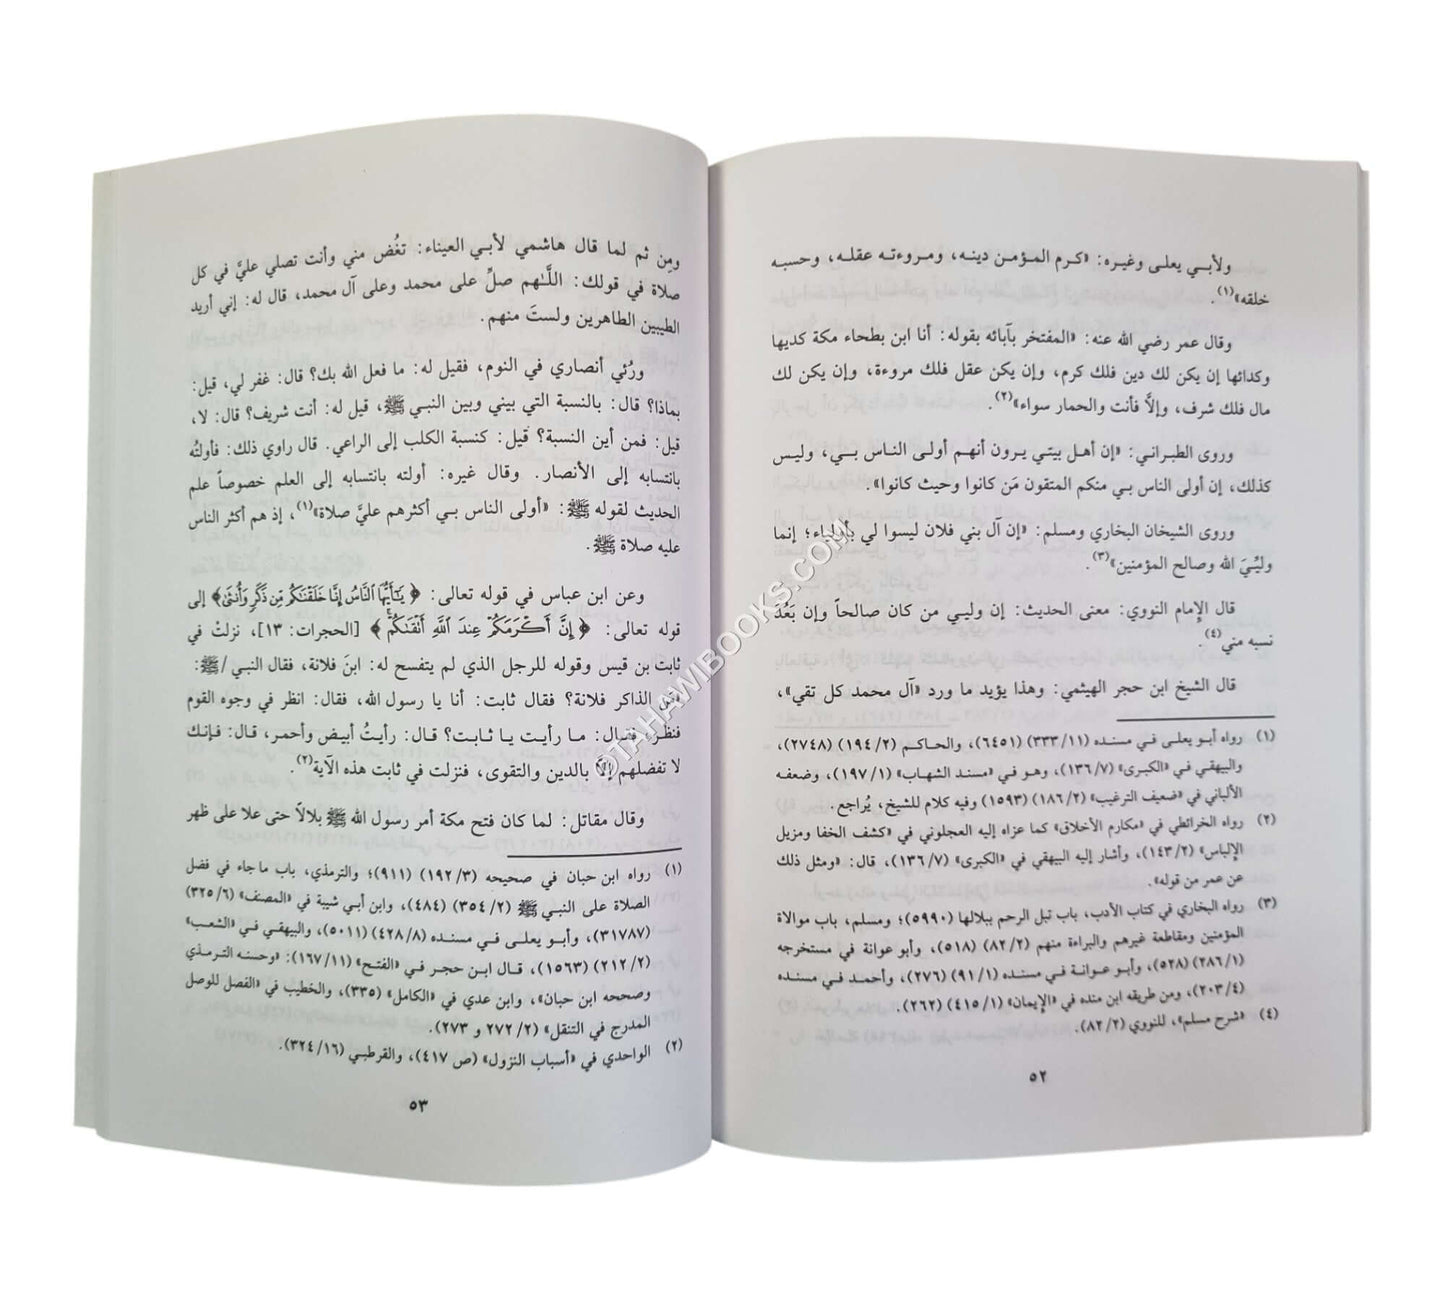 ولأبي يعلى وغيره: «كرم المؤمن دينه، ومروءته عقله، وحسبه
خلقه»(١).
وقال عمر رضي الله عنه: «المفتخر بآبائه بقوله: أنا ابن بطحاء مكة كديها
وكدائها إن يكن لك دين فلك كرم، وإن يكن عقل فلك مروءة، وإن يكن لك
مال فلك شرف، وإلاَّ فأنت والحمار سواء»(٢).
وروى الطبراني: «إن أهل بيتي يرون أنهم أولى الناس بي، وليس
كذلك، إن أولى الناس بي منكم المتقون مَن كانوا وحيث كانوا».
وروى الشيخان البخاري ومسلم: «إن آل بني فلان ليسوا لي بأولياء؛ إنما
وليِّيَ الله وصالح المؤمنين»(٣).
قال الإمام النووي: معنى الحديث: إن وليي من كان صالحاً وإن بَعُدَ
نسبه مني(٤).
قال الشيخ ابن حجر الهيثمي: وهذا يؤيد ما ورد «آل محمد كل تقي»،
(١) رواه أبو يعلى في مسنده (١١/ ٣٣٣) (٦٤٥١)، والحاكم (٢/ ١٩٤) (٢٧٤٨)،
والبيهقي في «الكبرى» (٧/ ١٣٦)، وهو في «مسند الشهاب» (١/ ١٩٧)، وضعفه
الألباني في «ضعيف الترغيب» (٢/ ١٨٦) (١٥٩٣) وفيه كلام للشيخ، يُراجع.
(٢) رواه الخرائطي في «مكارم الأخلاق» كما عزاه إليه العجلوني في «كشف الخفا ومزيل
الإلباس» (٢/ ١٤٣)، وأشار إليه البيهقي في «الكبرى» (٧/ ١٣٦)، قال: «ومثل ذلك
عن عمر من قوله».
(٣) رواه البخاري في كتاب الأدب، باب تبل الرحم ببلالها (٥٩٩٠)؛ ومسلم، باب موالاة
المؤمنين ومقاطعة غيرهم والبراءة منهم (٢/ ٨٢) (٥١٨)، وأبو عوانة في مستخرجه
(١/ ٢٨٦) (٥٢٨)، وأبو عوانة في مسنده (١/ ٩١) (٢٧٦)، وأحمد في مسنده
(٤/ ٢٠٣)، ومن طريقه ابن منده في «الإيمان» (١/ ٤١٥) (٢٦٢).
(٤) «شرح مسلم»، للنووي (٢/ ٨٢).
٥٢
ومِن ثم لما قال هاشمي لأبي العيناء: تغُض مني وأنت تصلي عليَّ في كل
صلاة في قولك: اللَّهم صلِّ على محمد وعلى آل محمد، قال له: إني أريد
الطيبين الطاهرين ولستَ منهم.
ورُئي أنصاري في النوم، فقيل له: ما فعل الله بك؟ قال: غفر لي، قيل:
بماذا؟ قال: بالنسبة التي بيني وبين النبي ﷺ، قيل له: أنت شريف؟ قال: لا،
قيل: فمن أين النسبة؟ قيل: كنسبة الكلب إلى الراعي. قال راوي ذلك: فأولتُه
بانتسابه إلى الأنصار. وقال غيره: أولته بانتسابه إلى العلم خصوصاً علم
الحديث لقوله ﷺ: «أولى الناس بي أكثرهم عليَّ صلاة»(١)، إذ هم أكثر الناس
عليه صلاة ﷺ.
وعن ابن عباس في قوله تعالى: ﴿ يَٰٓأَيُّهَا ٱلنَّاسُ إِنَّا خَلَقْنَٰكُم مِّن ذَكَرٍ وَأُنثَىٰ﴾ إلى
قوله تعالى: ﴿ إِنَّ أَكْرَمَكُمْ عِندَ ٱللَّهِ أَتْقَىٰكُمْ ﴾ [الحجرات: ١٣]، نزلتْ في
ثابت بن قيس وقوله للرجل الذي لم يتفسح له: ابنَ فلانة، فقال النبي ﷺ:
«من الذاكر فلانة؟ فقال ثابت: أنا يا رسول الله، فقال: انظر في وجوه القوم
فنظر، فقال: ما رأيت يا ثابت؟ قال: رأيتُ أبيض وأحمر، قال: فإنك
لا تفضلهم إلاَّ بالدين والتقوى، فنزلت في ثابت هذه الآية(٢).
وقال مقاتل: لما كان فتح مكة أمر رسول الله ﷺ بلالاً حتى علا على ظهر
(١) رواه ابن حبان في صحيحه (٣/ ١٩٢) (٩١١)؛ والترمذي، باب ما جاء في فضل
الصلاة على النبي ﷺ (٢/ ٣٥٤) (٤٨٤)، وابن أبي شيبة في «المصنف» (٦/ ٣٢٥)
(٣١٧٨٧)، وأبو يعلى في مسنده (٨/ ٤٢٨) (٥٠١١)، والبيهقي في «الشعب»
(٢/ ٢١٢) (١٥٦٣)، قال ابن حجر في «الفتح» (١١/ ١٦٧): «وحسنه الترمذي
وصححه ابن حبان»، وابن عدي في «الكامل» (٣٣٥)، والخطيب في «الفصل للوصل
المدرج في التنقل» (٢/ ٢٧٢ و ٢٧٣).
(٢) الواحدي في «أسباب النزول» (ص ٤١٧)، والقرطبي (١٦/ ٣٢٤).
٥٣
©TAHAWIBOOKS.COM